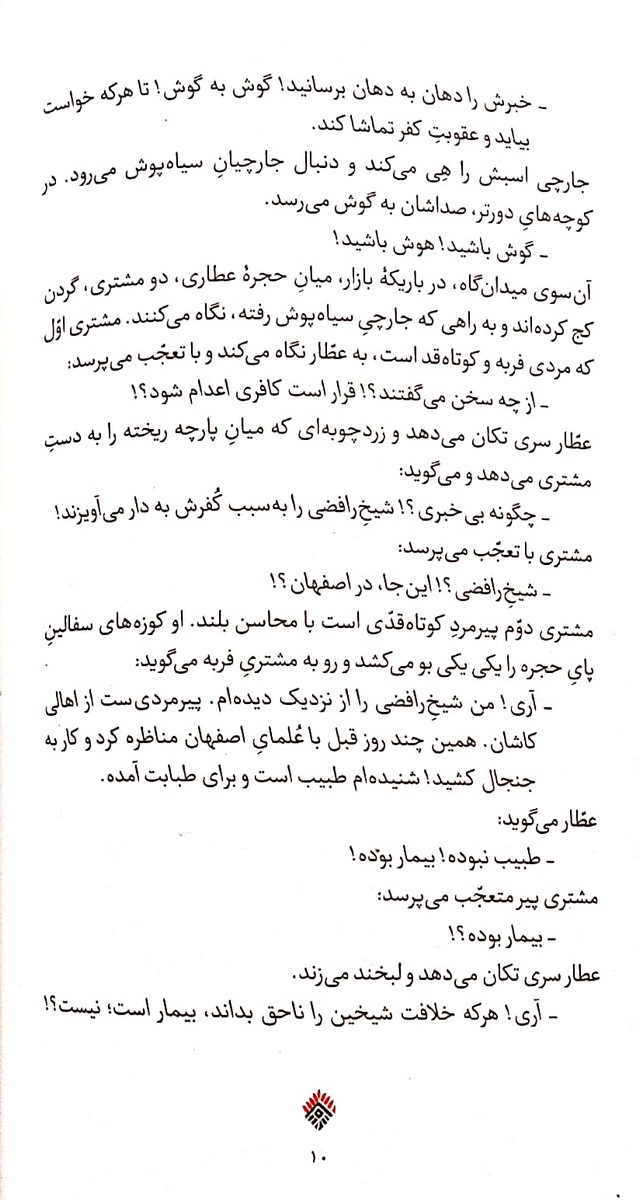 ـ خبرش را دهان به دهان برسانید! گوش به گوش! تا هرکه خواست
بیاید و عقوبتِ کفر تماشا کند.
جارچی اسبش را هِی می‌کند و دنبال جارچیانِ سیاه‌پوش می‌رود. در
کوچه‌هایِ دورتر، صداشان به گوش می‌رسد.
ـ گوش باشید! هوش باشید!
آن‌سوی میدان‌گاه، در باریکهٔ بازار، میانِ حجرهٔ عطاری، دو مشتری، گردن
کج کرده‌اند و به راهی که جارچیِ سیاه‌پوش رفته، نگاه می‌کنند. مشتری اوّل
که مردی فربه و کوتاه‌قد است، به عطّار نگاه می‌کند و با تعجّب می‌پرسد:
ـ از چه سخن می‌گفتند؟! قرار است کافری اعدام شود؟!
عطّار سری تکان می‌دهد و زردچوبه‌ای که میانِ پارچه ریخته را به دستِ
مشتری می‌دهد و می‌گوید:
ـ چگونه بی‌خبری؟! شیخِ‌رافضی را به‌سبب کُفرش به دار می‌آویزند!
مشتری با تعجّب می‌پرسد:
ـ شیخِ‌رافضی؟! این‌جا، در اصفهان؟!
مشتری دوّم پیرمردِ کوتاه‌قدّی است با محاسن بلند. او کوزه‌های سفالینِ
پایِ حجره را یکی یکی بو می‌کشد و رو به مشتریِ فربه می‌گوید:
ـ آری! من شیخِ‌رافضی را از نزدیک دیده‌ام. پیرمردی‌ست از اهالی
کاشان. همین چند روز قبل با عُلمایِ اصفهان مناظره کرد و کار به
جنجال کشید! شنیده‌ام طبیب است و برای طبابت آمده.
عطّار می‌گوید:
ـ طبیب نبوده! بیمار بوده!
مشتری پیر متعجّب می‌پرسد:
ـ بیمار بوده؟!
عطار سری تکان می‌دهد و لبخند می‌زند.
ـ آری! هرکه خلافت شیخین را ناحق بداند، بیمار است؛ نیست؟!
۱۰